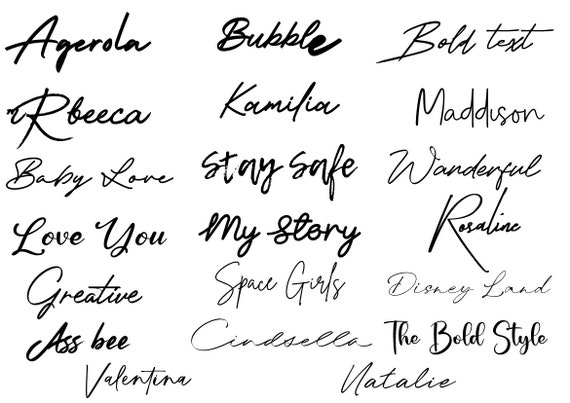 Agerola Bubble Bold text
Rbeeca Kamilia Maddison
Baby Love Stay Safe Wanderful
Love You My Story Rosaline
Greative Space Girls Disney Land
Ass bee Cindsella The Bold Style
Valentina Natalie